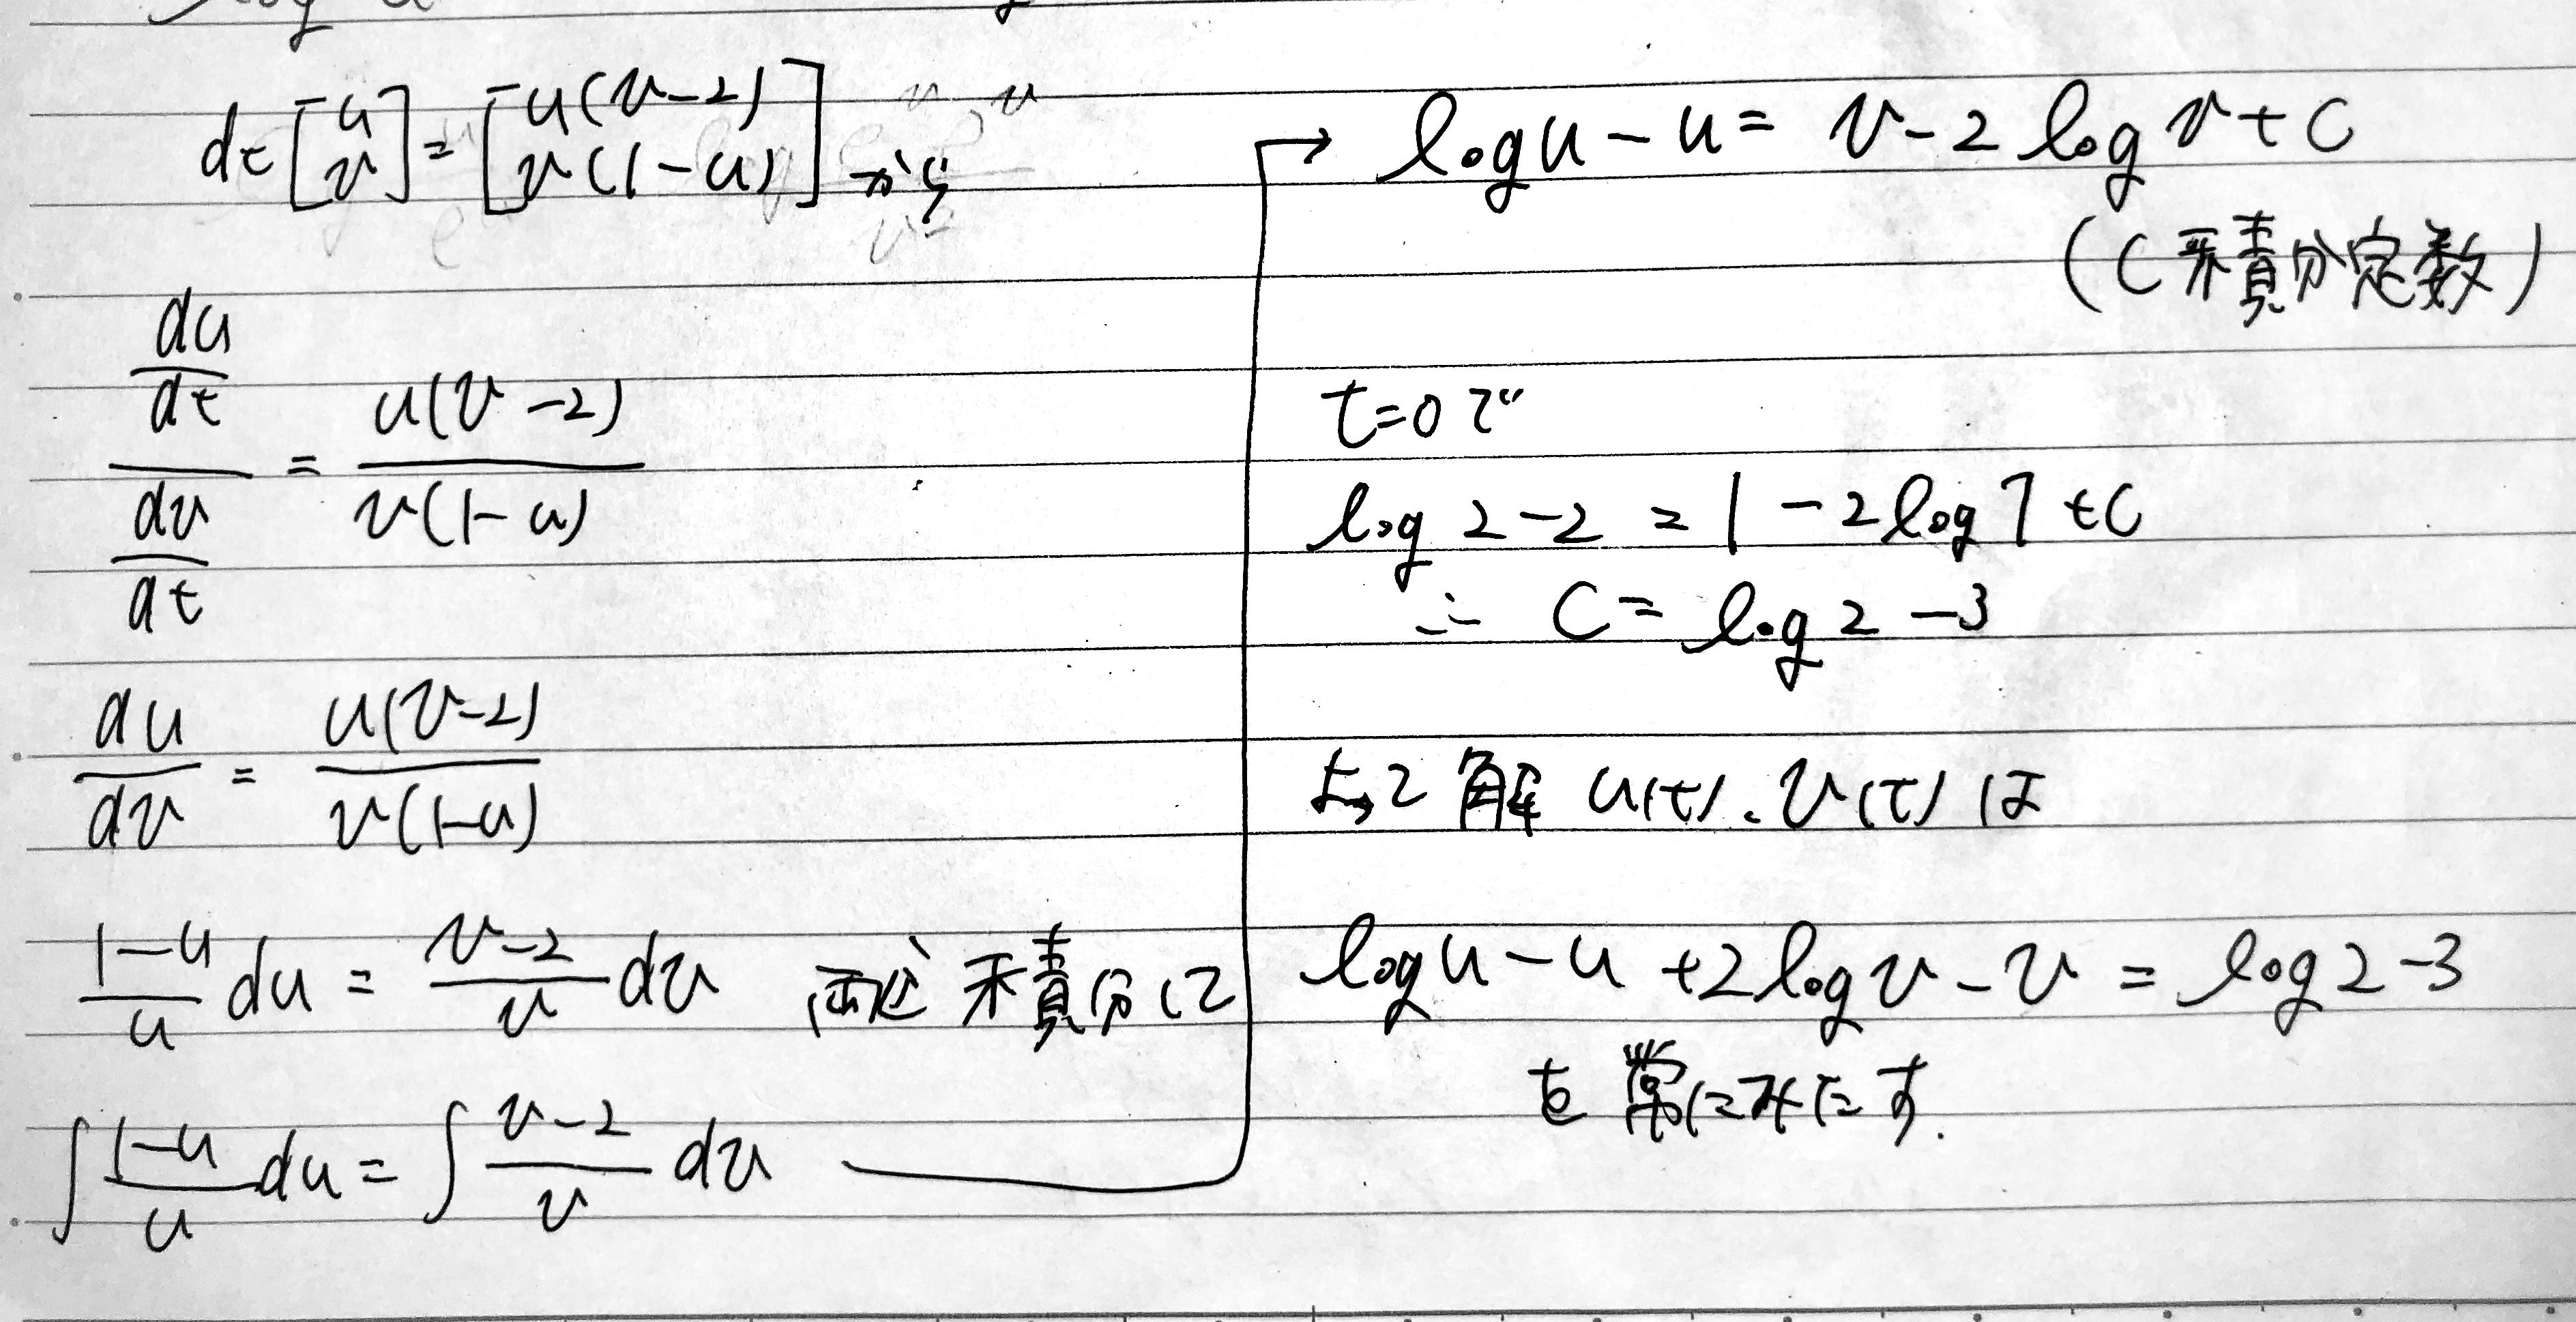 d_t [u v] = [u(v-2) v(1-u)] から
du/dt / dv/dt = u(v-2) / v(1-u)
du/dv = u(v-2) / v(1-u)
1-u/u du = v-2/v dv 両辺積分して
∫ 1-u/u du = ∫ v-2/v dv
→ log u - u = v - 2 log v + C
(C 積分定数)
t=0で
log 2 - 2 = 1 - 2 log 1 + C
∴ C = log 2 - 3
よって解 u(t), v(t) は
log u - u + 2 log v - v = log 2 - 3
を常にみたす.